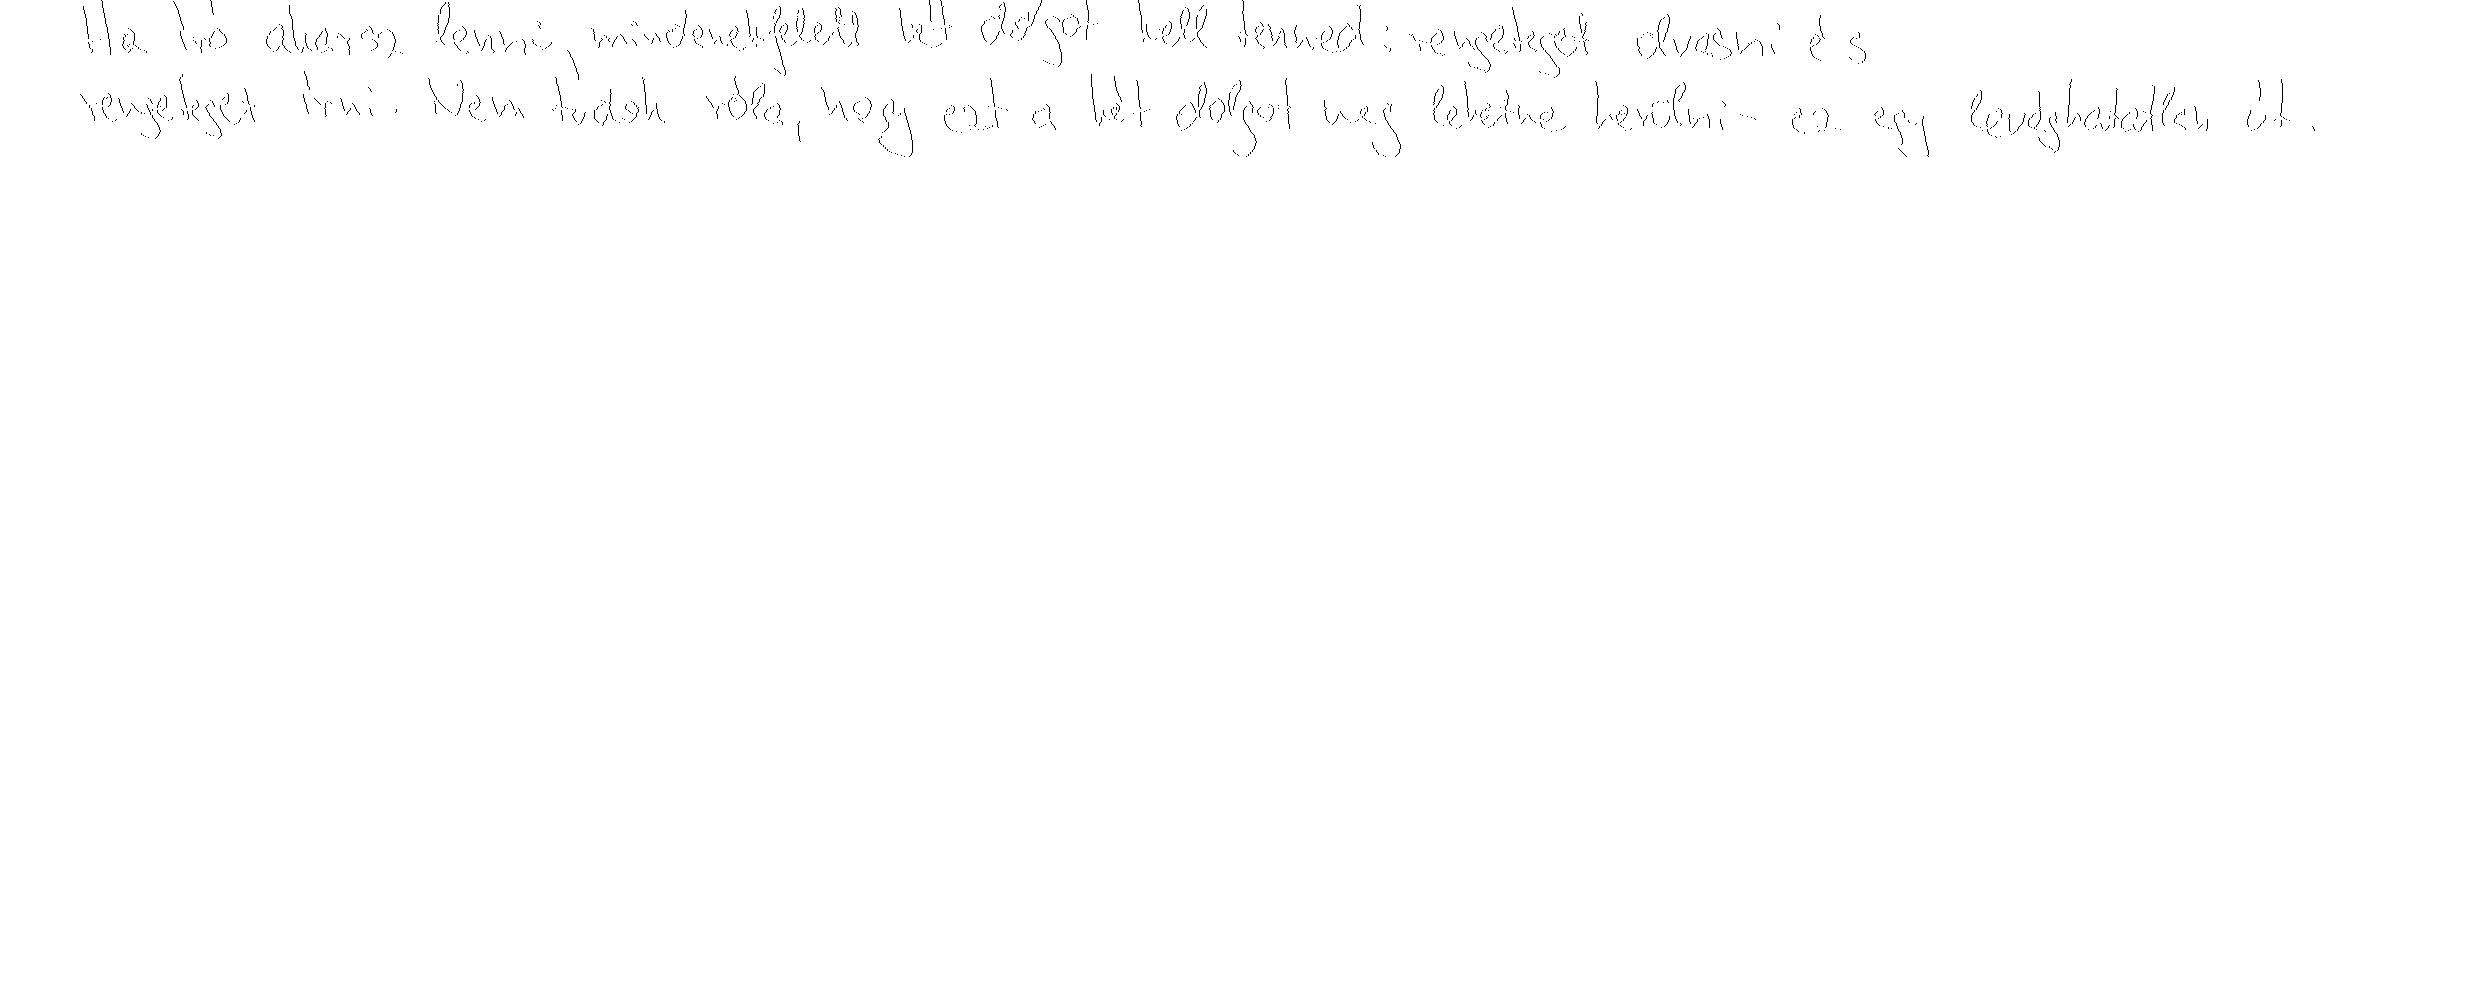 Ha író akarsz lenni, mindenekfelett két dolgot kell tenned: rengeteget olvasni és
rengeteget írni. Nem tudok róla, hogy ezt a két dolgot meg lehetne kerülni - ez egy levághatatlan út.